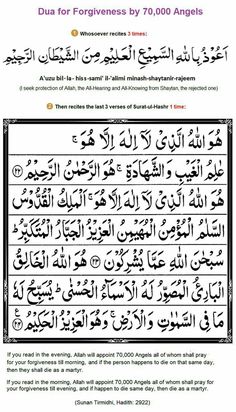 Dua for Forgiveness by 70,000 Angels
1 Whosoever recites 3 times:
اَعُوْذُ بِاللّٰهِ السَّمِيْعِ الْعَلِيْمِ مِنَ الشَّيْطَانِ الرَّجِيْمِ
A'uzu bil-la- hiss-sami' il-'alimi minash-shaytanir-rajeem
(I seek protection of Allah, the All-Hearing and All-Knowing from Shaytan, the rejected one)
2 Then recites the last 3 verses of Surat-ul-Hashr 1 time:
هُوَ اللّٰهُ الَّذِىْ لَاۤ اِلٰهَ اِلَّا هُوَ ۚ
عٰلِمُ الْغَيْبِ وَالشَّهَادَةِ ۚ هُوَ الرَّحْمٰنُ الرَّحِيْمُ ﴿۲۲﴾
هُوَ اللّٰهُ الَّذِىْ لَاۤ اِلٰهَ اِلَّا هُوَ ۚ اَلْمَلِكُ الْقُدُّوْسُ
السَّلٰمُ الْمُؤْمِنُ الْمُهَيْمِنُ الْعَزِيْزُ الْجَبَّارُ الْمُتَكَبِّرُ ؕ
سُبْحٰنَ اللّٰهِ عَمَّا يُشْرِكُوْنَ ﴿۲۳﴾ هُوَ اللّٰهُ الْخَالِقُ
الْبَارِئُ الْمُصَوِّرُ لَهُ الْاَسْمَآءُ الْحُسْنٰى ؕ يُسَبِّحُ لَهٗ
مَا فِى السَّمٰوٰتِ وَالْاَرْضِ ۚ وَهُوَ الْعَزِيْزُ الْحَكِيْمُ ﴿۲۴﴾
If you read in the evening, Allah will appoint 70,000 Angels all of whom shall pray
for your forgiveness till morning, and if the person happens to die on that same day,
then they shall die as a martyr.
If you read in the morning, Allah will appoint 70,000 Angels all of whom shall pray for
your forgiveness till evening, and if happens to die same day, then die as a martyr.
(Sunan Tirmidhi, Hadith: 2922)